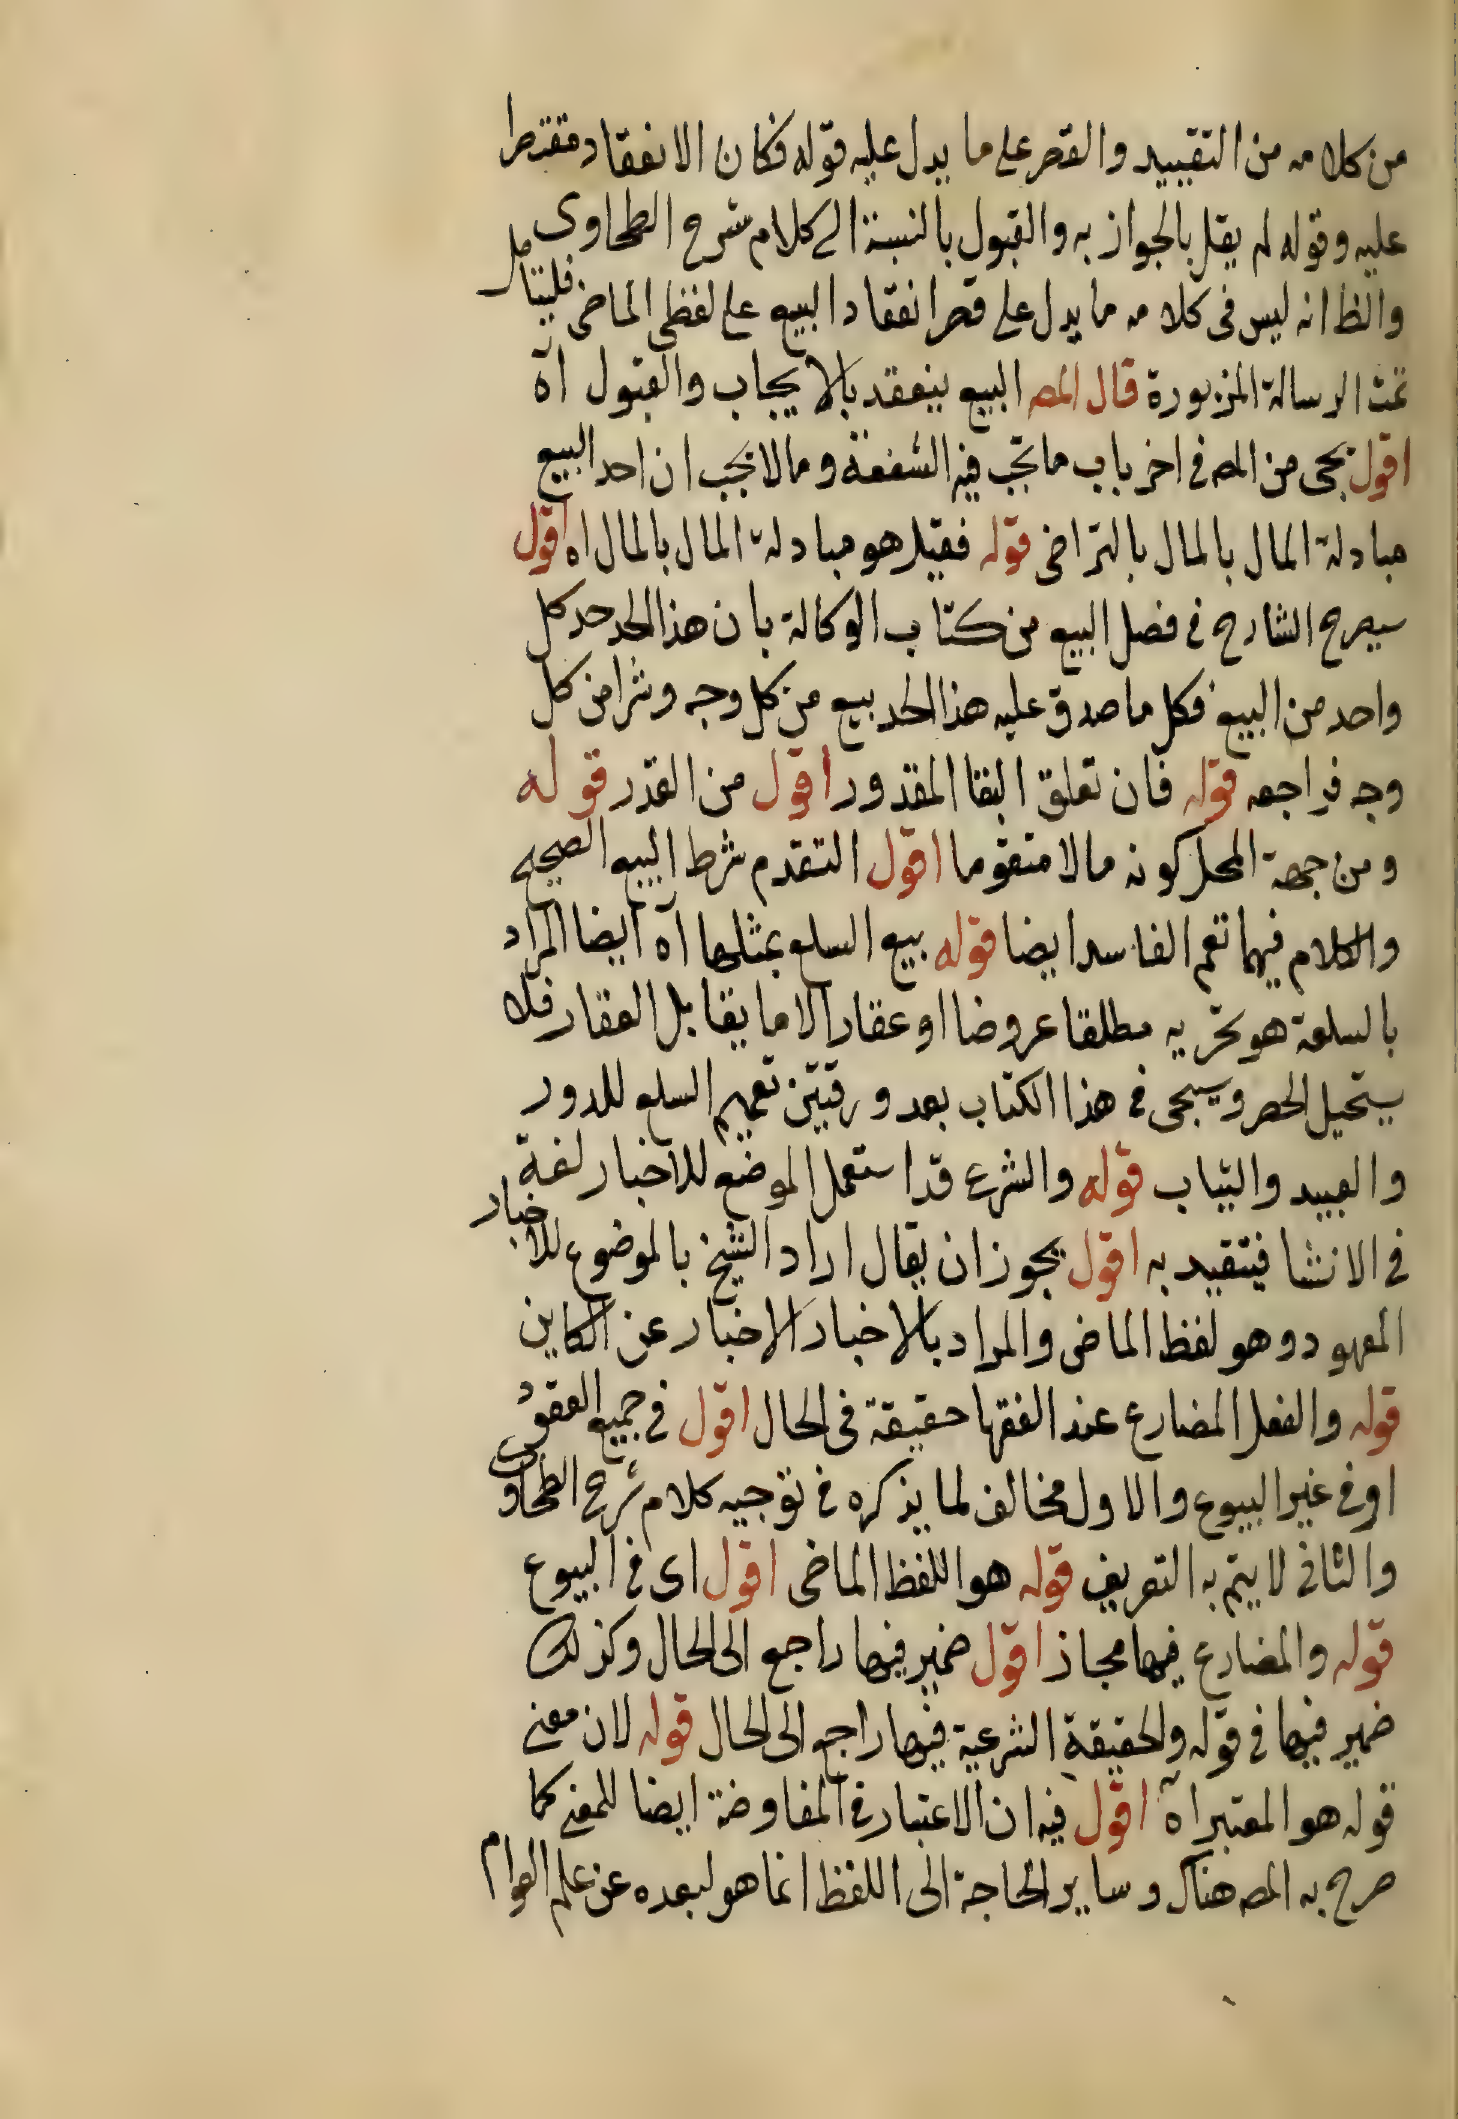 من كلامه من التقييد والقصر على ما يدل عليه قوله فكان الانعقاد مقتصرا
عليه وقوله لم يقل بالجواز به والقبول بالنسبة الى كلام شرح الطحاوى
والظ انه ليس فى كلامه ما يدل على قصر انعقاد البيع على لفظى الماضى فليتامل
تمت الرسالة المزبورة قال المص البيع ينعقد بالايجاب والقبول آه
اقول يجى من المص فى اخر باب ما تجب فيه الشفعة وما لا يجب ان احد البيع
مبادلة المال بالمال بالتراضى قوله فقيل هو مبادلة المال بالمال اه اقول
سيصرح الشارح فى فصل البيع من كتاب الوكالة بان هذا الحد حد كل
واحد من البيع فكل ما صدق عليه هذا الحد بيع من كل وجه وشرا من كل
وجه فراجعه قوله فان تعلق البقا المقدور اقول من القدر قوله
ومن جهة المحل كونه مالا متقوما اقول التقدم شرط البيع الصحيح
والكلام فيما تعم الفاسد ايضا قوله بيع السلع بمثلها آه ايضا المراد
بالسلعة هو مطلقا عروضا او عقارا لا ما يقابل العقار فلا
يستحيل الحصر وسيجى فى هذا الكتاب بعد ورقتين تعميم السلع للدور
والعبيد والثياب قوله والشرع قد استعمل الموضع للاخبار لغة
فى الانشا فيتقيد به اقول يجوز ان يقال اراد الشيخ بالموضوع للاخبار
المعهود وهو لفظ الماضى والمراد بالاخبار الاخبار عن الكاين
قوله والفعل المضارع عند الفقها حقيقة فى الحال اقول فى جميع العقود
او فى غير البيوع والاول مخالف لما يذكره فى توجيه كلام شرح الطحاوى
والثانى لا يتم به التعريف قوله هو اللفظ الماضى اقول اى فى البيوع
قوله والمضارع فيها مجاز اقول ضمير فيها راجع الى الحال وكذلك
ضمير فيها فى قوله والحقيقة الشرعية فيها راجع الى الحال قوله لان معنى
قوله هو المعتبر آه اقول فيه ان الاعتبار فى المفاوضة ايضا للمعنى كما
صرح به المص هناك وساير الحاجة الى اللفظ انما هو لبعده عن علم العوام